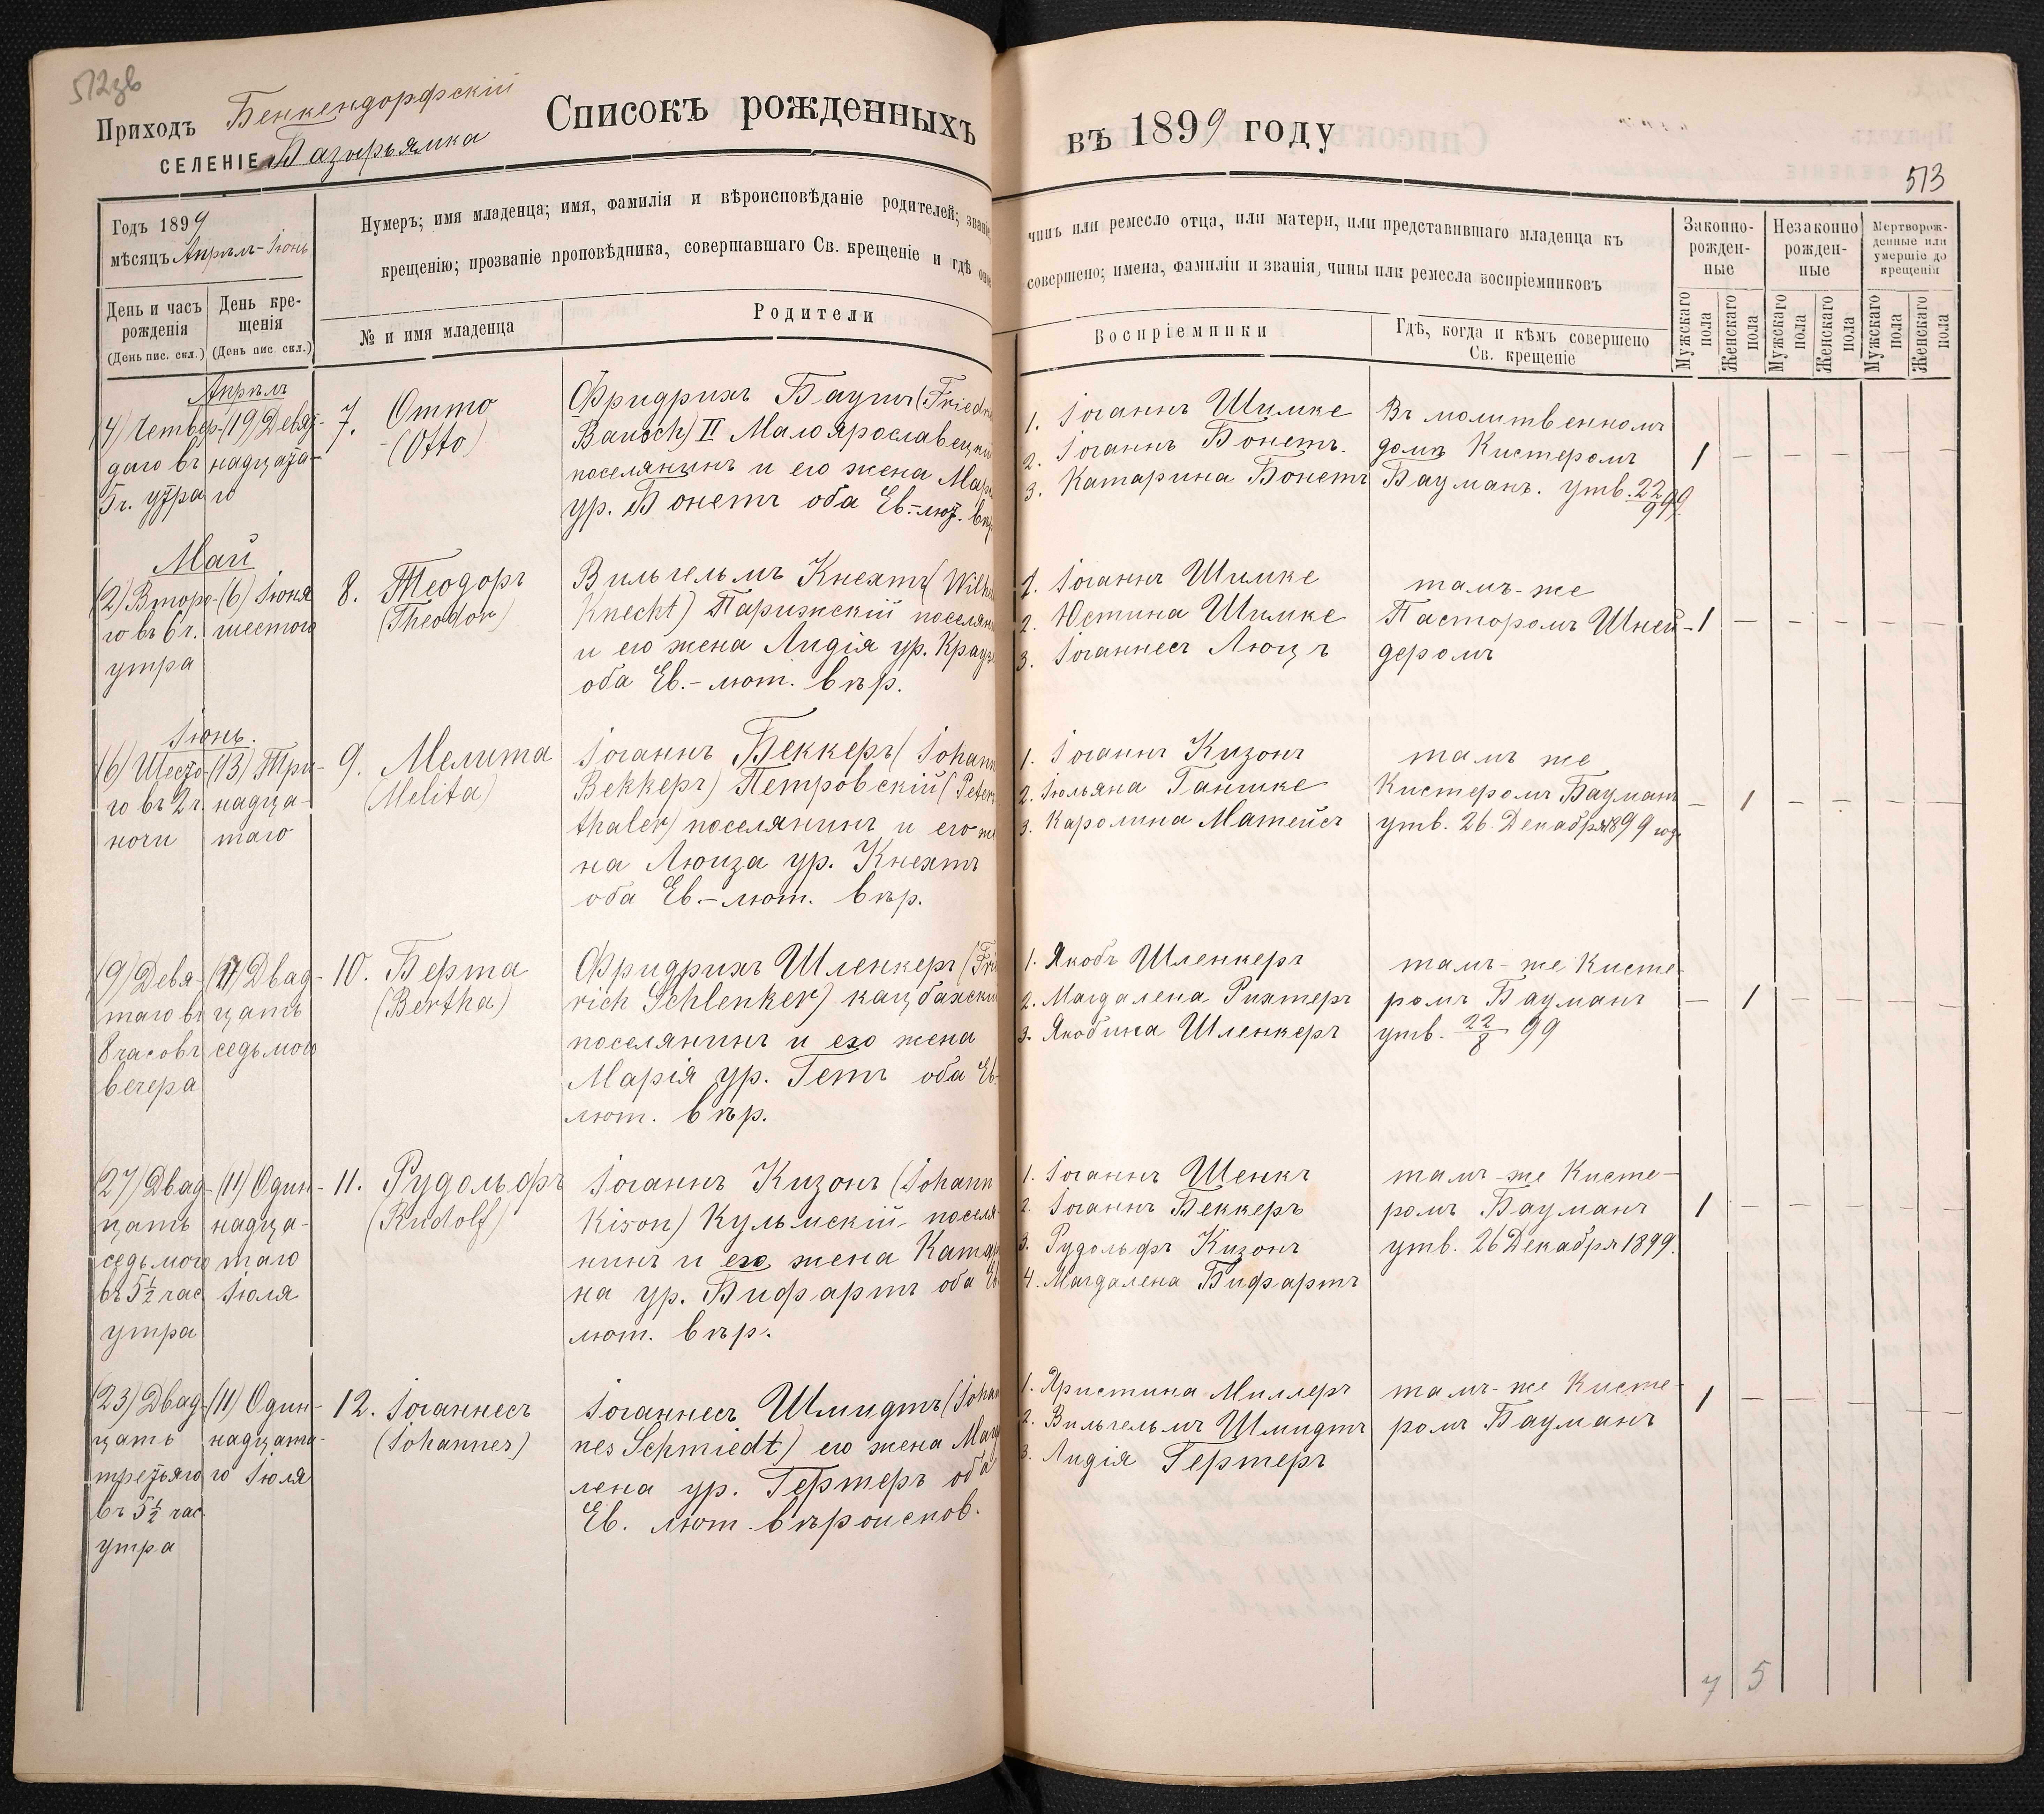 512зв
Приходъ Бенкендорфскій
СЕЛЕНІЕ Базырьямка
Списокъ рожденныхъ
въ 1899 году
513
Годъ 1899
мѣсяцъ Апрѣль-Іюнь
Нумеръ; имя младенца; имя, фамилія и вѣроисповѣданіе родителей; званіе
крещенію; прозваніе проповѣдника, совершавшаго Св. крещеніе и гдѣ оное
чинъ или ремесло отца, или матери, или представившаго младенца къ
совершено; имена, фамиліи и званія, чины или ремесла воспріемниковъ
День и часъ
рожденія
(День пис. скл.)
День кре-
щенія
(День пис. скл.)
№ и имя младенца
Родители
Воспріемники
Гдѣ, когда и кѣмъ совершено
Св. крещеніе
Законно-
рожден-
ные
Незаконно
рожден-
ные
Мертворож-
денные или
умершіе до
крещенія
Мужскаго
пола
Женскаго
пола
Мужскаго
пола
Женскаго
пола
Мужскаго
пола
Женскаго
пола
Апрѣль
(4) Четвер-
таго въ
5 ч. утра
(19) Девят-
надцата-
го
7. Отто
(Otto)
Фридрихъ Баушъ (Friedri
Bausch) II Малоярославецкій
поселянинъ и его жена Мар
ур. Бонетъ оба Ев.-лют. вѣр
1. Іоганнъ Шимке
2. Іоганнъ Бонетъ.
3. Катарина Бонетъ
Въ молитвенномъ
домѣ Кистеромъ
Бауманъ. утв. 22/9 99
1 – – – – –
Май
(2) Второ-
го въ 6 ч.
утра
(6) Іюня
шестого
8. Теодоръ
(Theodor)
Вильгельмъ Кнехтъ (Wilhe
Knecht) Парижскій поселян
и его жена Лидія ур. Крауз
оба Ев.-лют. вѣр.
1. Іоганнъ Шимке
2. Юстина Шимке
3. Іоганнесъ Люцъ
тамъ-же
Пасторомъ Шней-
деромъ
1 – – – – –
Іюнь.
(6) Шесто-
го въ 2 ч.
ночи
(13) Три-
надца-
таго
9. Мелита
(Melita)
Іоганнъ Беккеръ (Johann
Беккеръ) Петровскій (Peters
thaler) поселянинъ и его же
на Люиза ур. Кнехтъ
оба Ев.-лют. вѣр.
1. Іоганнъ Кизонъ
2. Юльяна Ганшке
3. Каролина Матейсъ
тамъ же
Кистеромъ Бауманъ
утв. 26 Декабря 1899 год.
– 1 – – – –
(9) Девя-
таго въ
8 часовъ
вечера
(27) Двад-
цать
седьмого
10. Берта
(Bertha)
Фридрихъ Шленкеръ (Fried
rich Schlenker) кацбахскій
поселянинъ и его жена
Марія ур. Гетъ оба Ев.
лют. вѣр.
1. Якобъ Шленкеръ
2. Магдалена Рихтеръ
3. Якобина Шленкеръ
тамъ-же Кисте-
ромъ Бауманъ
утв. 22/8 99
– 1 – – – –
(27) Двад-
цать
седьмого
въ 5½ час.
утра
(11) Один-
надца-
таго
Іюля
11. Рудольфъ
(Rudolf)
Іоганнъ Кизонъ (Johann
Kison) Кульмскій поселя-
нинъ и его жена Катари
на ур. Бифартъ оба Ев
лют. вѣр.
1. Іоганнъ Шенкъ
2. Іоганнъ Беккеръ
3. Рудольфъ Кизонъ
4. Магдалена Бифартъ
тамъ-же Кисте-
ромъ Бауманъ
утв. 26 Декабря 1899.
1 – – – – –
(23) Двад-
цать
третьяго
въ 5½ час.
утра
(11) Один-
надцата-
го Іюля
12. Іоганнесъ
(Johannes)
Іоганнесъ Шмидтъ (Johan
nes Schmiedt) его жена Магда
лена ур. Гертеръ оба
Ев. лют. вѣроиспов.
1. Христина Миллеръ
2. Вильгельмъ Шмидтъ
3. Лидія Гертеръ
тамъ-же Кисте-
ромъ Бауманъ
1 – – – – –
7 5